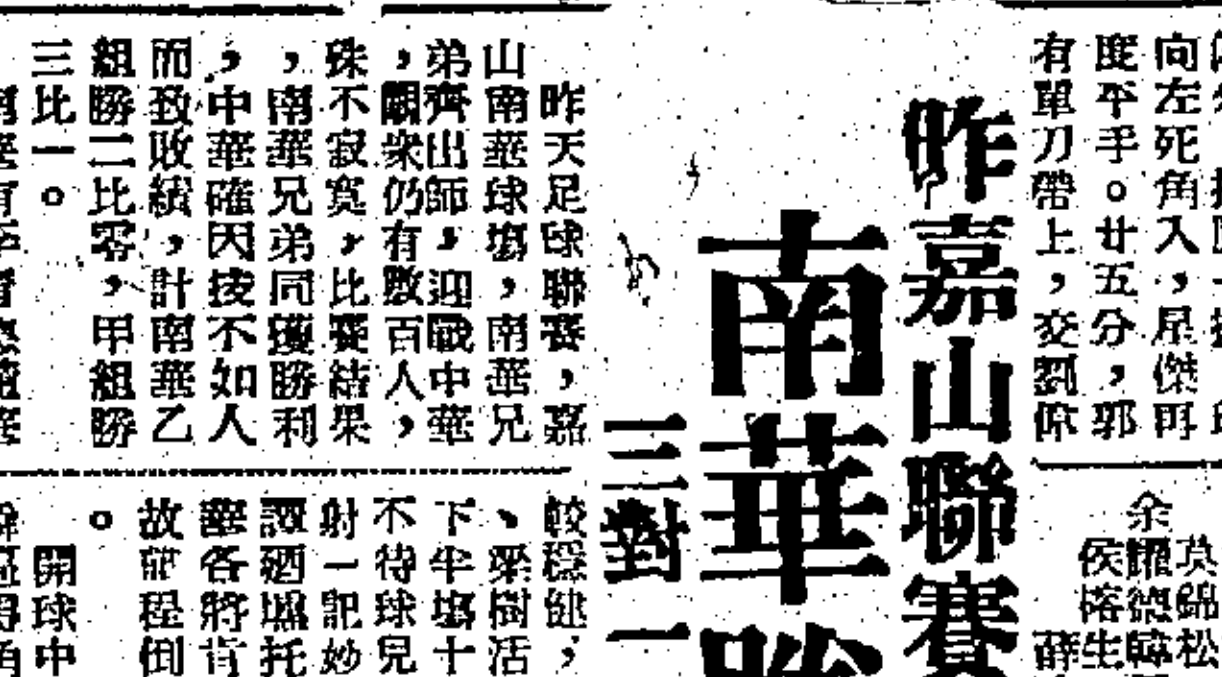 向左死角入，
度平手。廿五分，郭
有單刀帶上，交劉
余耀德
侯榕生
昨嘉山聯賽
南華勝
三對一
昨天足球聯賽，嘉
山南華球場，南華兄
弟齊出師，迎戰中華
，觀衆仍有數百人，
殊不寂寞，比賽結果
，南華兄弟同獲勝利
，中華確因技不如人
而致敗績，計南華乙
組勝二比零，甲組勝
三比一。
較穩健，
、梁樹活
下半場十
不待球兒
射一記妙
譚廼壎托
華各將肯
故前程倒
。
開球中